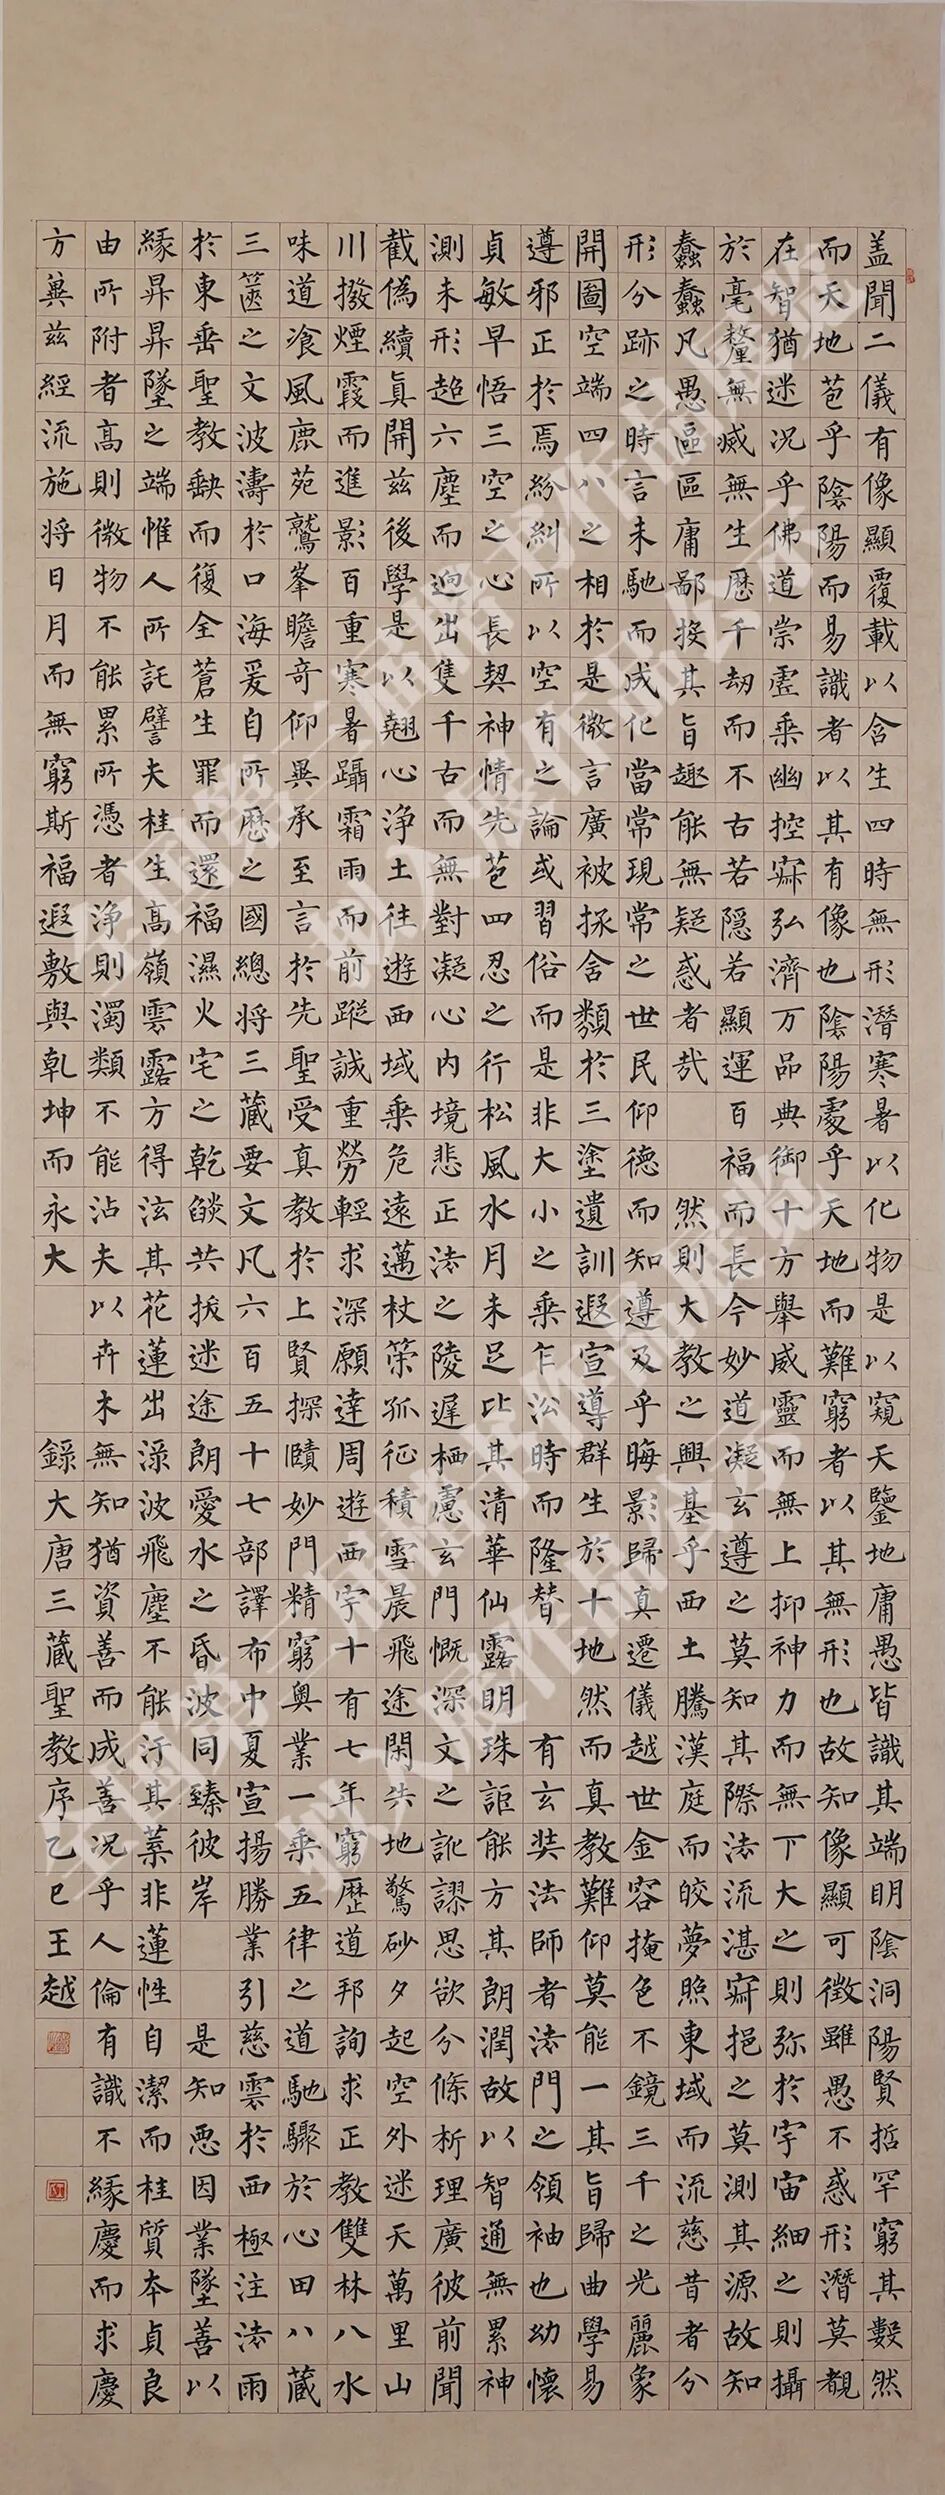 盖聞二儀有像顯覆載以含生四時無形潛寒暑以化物是以窺天鑒地庸愚皆識其端明陰洞陽賢哲罕窮其數然
而天地苞乎陰陽而易識者以其有像也陰陽處乎天地而難窮者以其無形也故知像顯可徵雖愚不惑形潛莫覩
在智猶迷况乎佛道崇虛乘幽控寂弘濟万品典御十方舉威靈而無上抑神力而無下大之則弥於宇宙細之則攝
於毫釐無滅無生歷千劫而不古若隱若顯運百福而長今妙道凝玄遵之莫知其際法流湛寂挹之莫測其源故知
蠢蠢凡愚區區庸鄙投其旨趣能無疑惑者哉 然則大教之興基乎西土騰漢庭而皎夢照東域而流慈昔者分
形分跡之時言未馳而成化當常現常之世民仰德而知遵及乎晦影歸真遷儀越世金容掩色不鏡三千之光麗象
開圖空端四八之相於是微言廣被拯含類於三塗遺訓遐宣導群生於十地然而真教難仰莫能一其旨歸曲學易
遵邪正於焉紛糾所以空有之論或習俗而是非大小之乘乍沿時而隆替 有玄奘法師者法門之領袖也幼懷
貞敏早悟三空之心長契神情先苞四忍之行松風水月未足比其清華仙露明珠詎能方其朗潤故以智通無累神
測未形超六塵而迥出隻千古而無對凝心內境悲正法之陵遲栖慮玄門慨深文之訛謬思欲分條析理廣彼前聞
截偽續真開茲後學是以翹心浄土往遊西域乘危遠邁杖策孤征積雪晨飛途閑失地驚砂夕起空外迷天萬里山
川撥煙霞而進影百重寒暑躡霜雨而前蹤誠重勞輕求深願達周遊西宇十有七年窮歷道邦詢求正教雙林八水
味道飡風鹿苑鷲峯瞻奇仰異承至言於先聖受真教於上賢探賾妙門精窮奧業一乘五律之道馳驟於心田八藏
三篋之文波濤於口海爰自所歷之國總將三藏要文凡六百五十七部譯布中夏宣揚勝業引慈雲於西極注法雨
於東垂聖教缺而復全蒼生罪而還福濕火宅之乾燄共拔迷途朗愛水之昏波同臻彼岸 是知悪因業墜善以
緣昇昇墜之端惟人所託譬夫桂生高嶺雲露方得泫其花蓮出淥波飛塵不能汙其葉非蓮性自潔而桂質本貞良
由所附者高則微物不能累所憑者浄則濁類不能沾夫以卉木無知猶資善而成善況乎人倫有識不緣慶而求慶
方冀茲經流施將日月而無窮斯福遐敷與乾坤而永大 錄大唐三藏聖教序乙巳王越